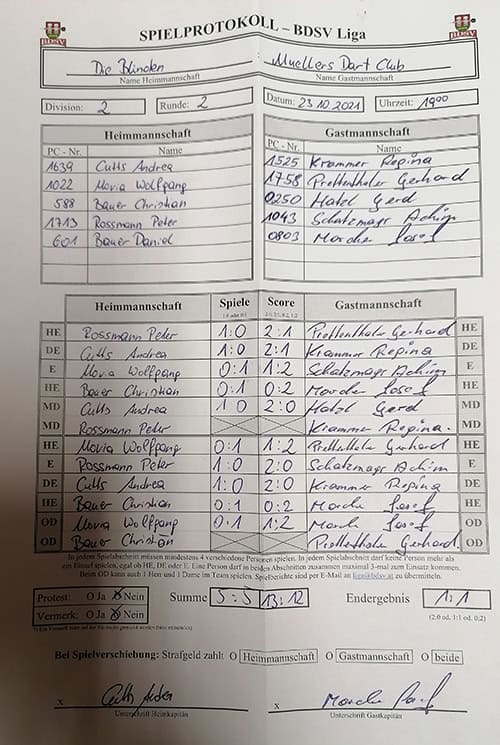 BDSV
SPIELPROTOKOLL – BDSV Liga
BDSV
Die Blinden
Muellers Dart Club
Name Heimmannschaft
Name Gastmannschaft
Division: 2
Runde: 2
Datum: 23 10.2021
Uhrzeit: 19 00
Heimmannschaft
Gastmannschaft
PC - Nr. Name
PC - Nr. Name
1639 Cutts Andrea
1525 Krammer Regina
1022 Movia Wolfgang
1758 Prettenthaler Gerhard
588 Bauer Christian
0250 Hatzl Gerd
1713 Rossmann Peter
1043 Schatzmayr Achim
601 Bauer Daniel
0803 Marche Josef
Heimmannschaft Spiele Score Gastmannschaft
1:0 oder 0:1
2:0, 2:1, 0:2, 1:2
HE Rossmann Peter 1:0 2:1 Prettenthaler Gerhard HE
DE Cutts Andrea 1:0 2:1 Krammer Regina DE
E Movia Wolfgang 0:1 1:2 Schatzmayr Achim E
HE Bauer Christian 0:1 0:2 Marche Josef HE
MD Cutts Andrea 1 0 2:0 Hatzl Gerd MD
MD Rossmann Peter Krammer Regina. MD
HE Movia Wolfgang 0:1 1:2 Prettenthaler Gerhard HE
E Rossmann Peter 1:0 2:0 Schatzmayr Achim E
DE Cutts Andrea 1:0 2:0 Krammer Regina DE
HE Bauer Christian 0:1 0:2 Marche Josef HE
OD Movia Wolfgang 0:1 1:2 Marche Josef OD
OD Bauer Christian Prettenthaler Gerhard OD
In jedem Spielabschnitt müssen mindestens 4 verschiedene Personen spielen. In jedem Spielabschnitt darf keine Person mehr als
ein Einzel spielen, egal ob HE, DE oder E. Eine Person darf in beiden Abschnitten zusammen maximal 3-mal zum Einsatz kommen.
Beim OD kann auch 1 Herr und 1 Dame im Team spielen. Spielberichte sind per E-Mail an liga@bdsv.at zu übermitteln.
Protest: O Ja O Nein
Summe 5:5 13:12 Endergebnis 1:1
Vermerk: O Ja O Nein
(2:0 od. 1:1 od. 0:2)
Bei Spielverschiebung: Strafgeld zahlt O Heimmannschaft O Gastmannschaft O beide
x Cutts Andrea
x Marche Josef
Unterschrift Heimkapitän
Unterschrift Gastkapitän